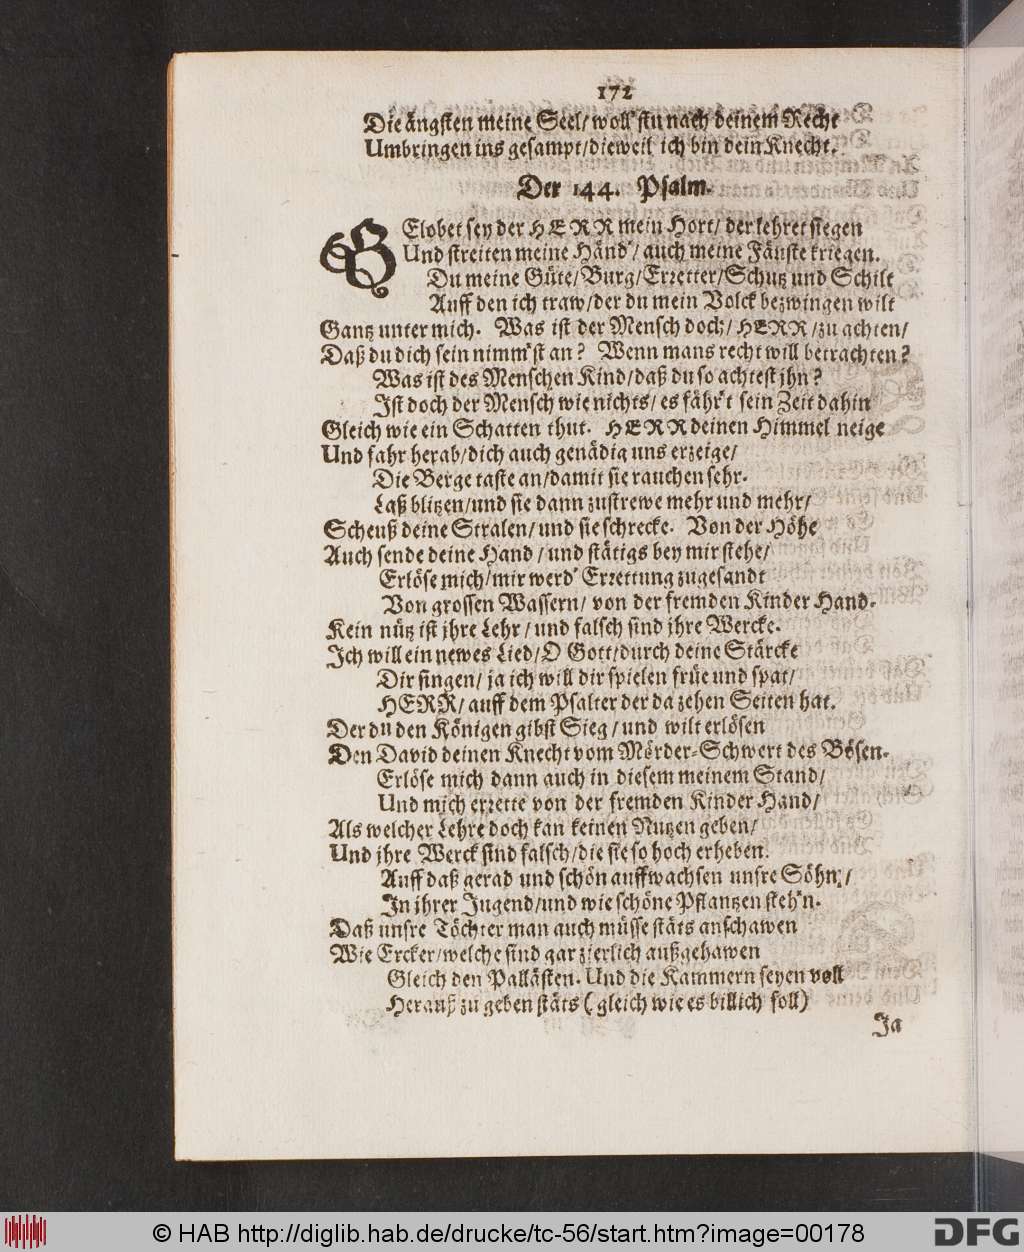 172
Die ängsten meine Seel/ woll'stu nach deinem Recht
Umbringen ins gesampt/ dieweil ich bin dein Knecht.
Der 144. Psalm.
GElobet sey der HERR mein Hort/ der lehret siegen
Und streiten meine Händ'/ auch meine Fäuste kriegen.
Du meine Güte/ Burg/ Erretter/ Schutz und Schilt
Auff den ich traw/ der du mein Volck bezwingen wilt
Gantz unter mich. Was ist der Mensch doch/ HERR/ zu achten/
Daß du dich sein nimm'st an? Wenn mans recht will betrachten?
Was ist des Menschen Kind/ daß du so achtest jhn?
Ist doch der Mensch wie nichts/ es fähr't sein Zeit dahin
Gleich wie ein Schatten thut. HERR deinen Himmel neige
Und fahr herab/ dich auch genädig uns erzeige/
Die Berge taste an/ damit sie rauchen sehr.
Laß blitzen/ und sie dann zustrewe mehr und mehr/
Scheuß deine Stralen/ und sie schrecke. Von der Höhe
Auch sende deine Hand/ und stätigs bey mir stehe/
Erlöse mich/ mir werd' Errettung zugesandt
Von grossen Wassern/ von der fremden Kinder Hand.
Kein nütz ist jhre Lehr/ und falsch sind jhre Wercke.
Ich will ein newes Lied/ O Gott/ durch deine Stärcke
Dir singen/ ja ich will dir spielen früe und spat/
HERR/ auff dem Psalter der da zehen Seiten hat.
Der du den Königen gibst Sieg/ und wilt erlösen
Den David deinen Knecht vom Mörder-Schwert des Bösen.
Erlöse mich dann auch in diesem meinem Stand/
Und mich errette von der fremden Kinder Hand/
Als welcher Lehre doch kan keinen Nutzen geben/
Und jhre Werck sind falsch/ die sie so hoch erheben.
Auff daß gerad und schön auffwachsen unsre Söhn'/
In jhrer Jugend/ und wie schöne Pflantzen steh'n.
Daß unsre Töchter man auch müsse stäts anschawen
Wie Ercker/ welche sind gar zierlich außgehawen
Gleich den Pallästen. Und die Kammern seyen voll
Herauß zu geben stäts (gleich wie es billich soll)
Ja
© HAB http://diglib.hab.de/drucke/tc-56/start.htm?image=00178
DFG